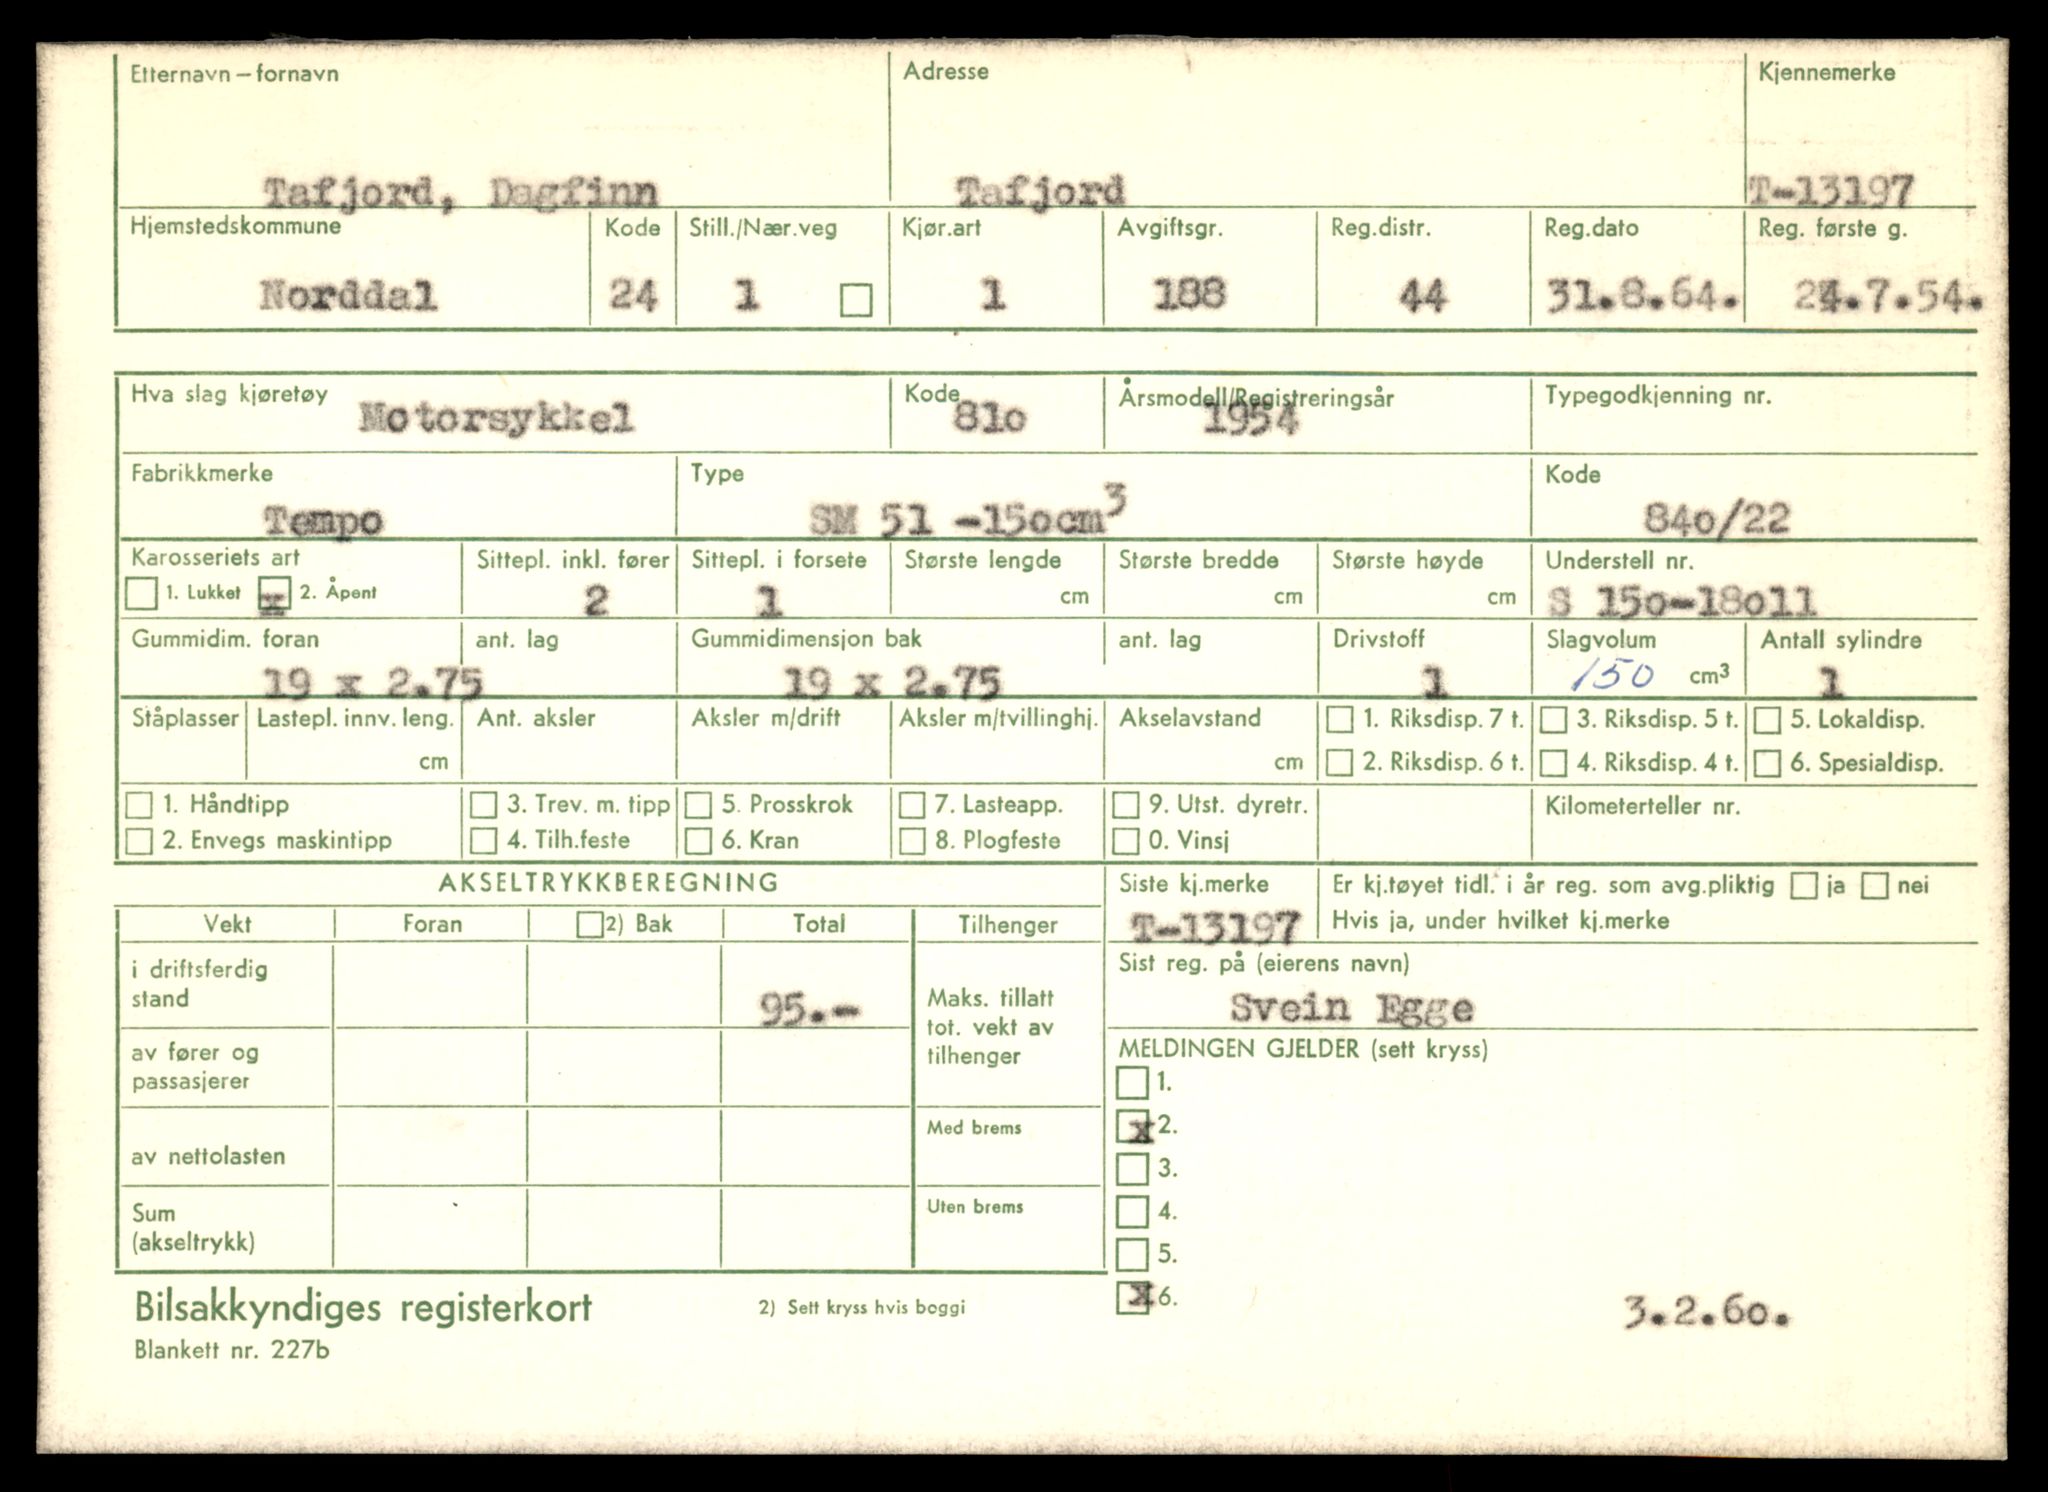 Etternavn – fornavn Adresse Kjennemerke
Tafjord, Dagfinn Tafjord T-13197
Hjemstedskommune Kode Still./Nær.veg Kjør.art Avgiftsgr. Reg.distr. Reg.dato Reg. første g.
Norddal 24 1 1 188 44 31.8.64. 24.7.54.
Hva slag kjøretøy Kode Årsmodell/Registreringsår Typegodkjenning nr.
Motorsykkel 810 1954
Fabrikkmerke Type Kode
Tempo SM 51 -150cm³ 840/22
Karosseriets art Sittepl. inkl. fører Sittepl. i forsete Største lengde Største bredde Største høyde Understell nr.
1. Lukket x 2. Åpent 2 1 cm cm cm S 150-18011
Gummidim. foran ant. lag Gummidimensjon bak ant. lag Drivstoff Slagvolum Antall sylindre
19 x 2.75 19 x 2.75 1 150 cm³ 1
Ståplasser Lastepl. innv. leng. Ant. aksler Aksler m/drift Aksler m/tvillinghj. Akselavstand 1. Riksdisp. 7 t. 3. Riksdisp. 5 t. 5. Lokaldisp.
cm cm 2. Riksdisp. 6 t. 4. Riksdisp. 4 t. 6. Spesialdisp.
1. Håndtipp 3. Trev. m. tipp 5. Prosskrok 7. Lasteapp. 9. Utst. dyretr. Kilometerteller nr.
2. Envegs maskintipp 4. Tilh.feste 6. Kran 8. Plogfeste 0. Vinsj
AKSELTRYKKBEREGNING Siste kj.merke Er kj.tøyet tidl. i år reg. som avg.pliktig ja nei
Vekt Foran 2) Bak Total Tilhenger T-13197 Hvis ja, under hvilket kj.merke
i driftsferdig Sist reg. på (eierens navn)
stand 95.- Maks. tillatt Svein Egge
tot. vekt av
av fører og tilhenger MELDINGEN GJELDER (sett kryss)
passasjerer 1.
Med brems x 2.
av nettolasten 3.
Sum Uten brems 4.
(akseltrykk) 5.
x 6.
Bilsakkyndiges registerkort 2) Sett kryss hvis boggi 3.2.60.
Blankett nr. 227b